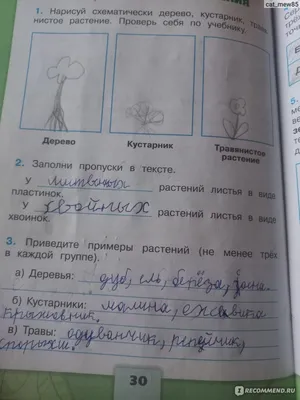 cat_mew85
1. Нарисуй схематически дерево, кустарник, травя
нистое растение. Проверь себя по учебнику.
Дерево
Кустарник
Травянистое
растение
2. Заполни пропуски в тексте.
У лиственных растений листья в виде
пластинок.
У хвойных растений листья в виде
хвоинок.
3. Приведите примеры растений (не менее трёх
в каждой группе).
а) Деревья: дуб, ель, берёза,
б) Кустарники: малина, ежевика
крыжовник.
в) Травы: одуванчик, репейник,
30
RECOMMEND.RU